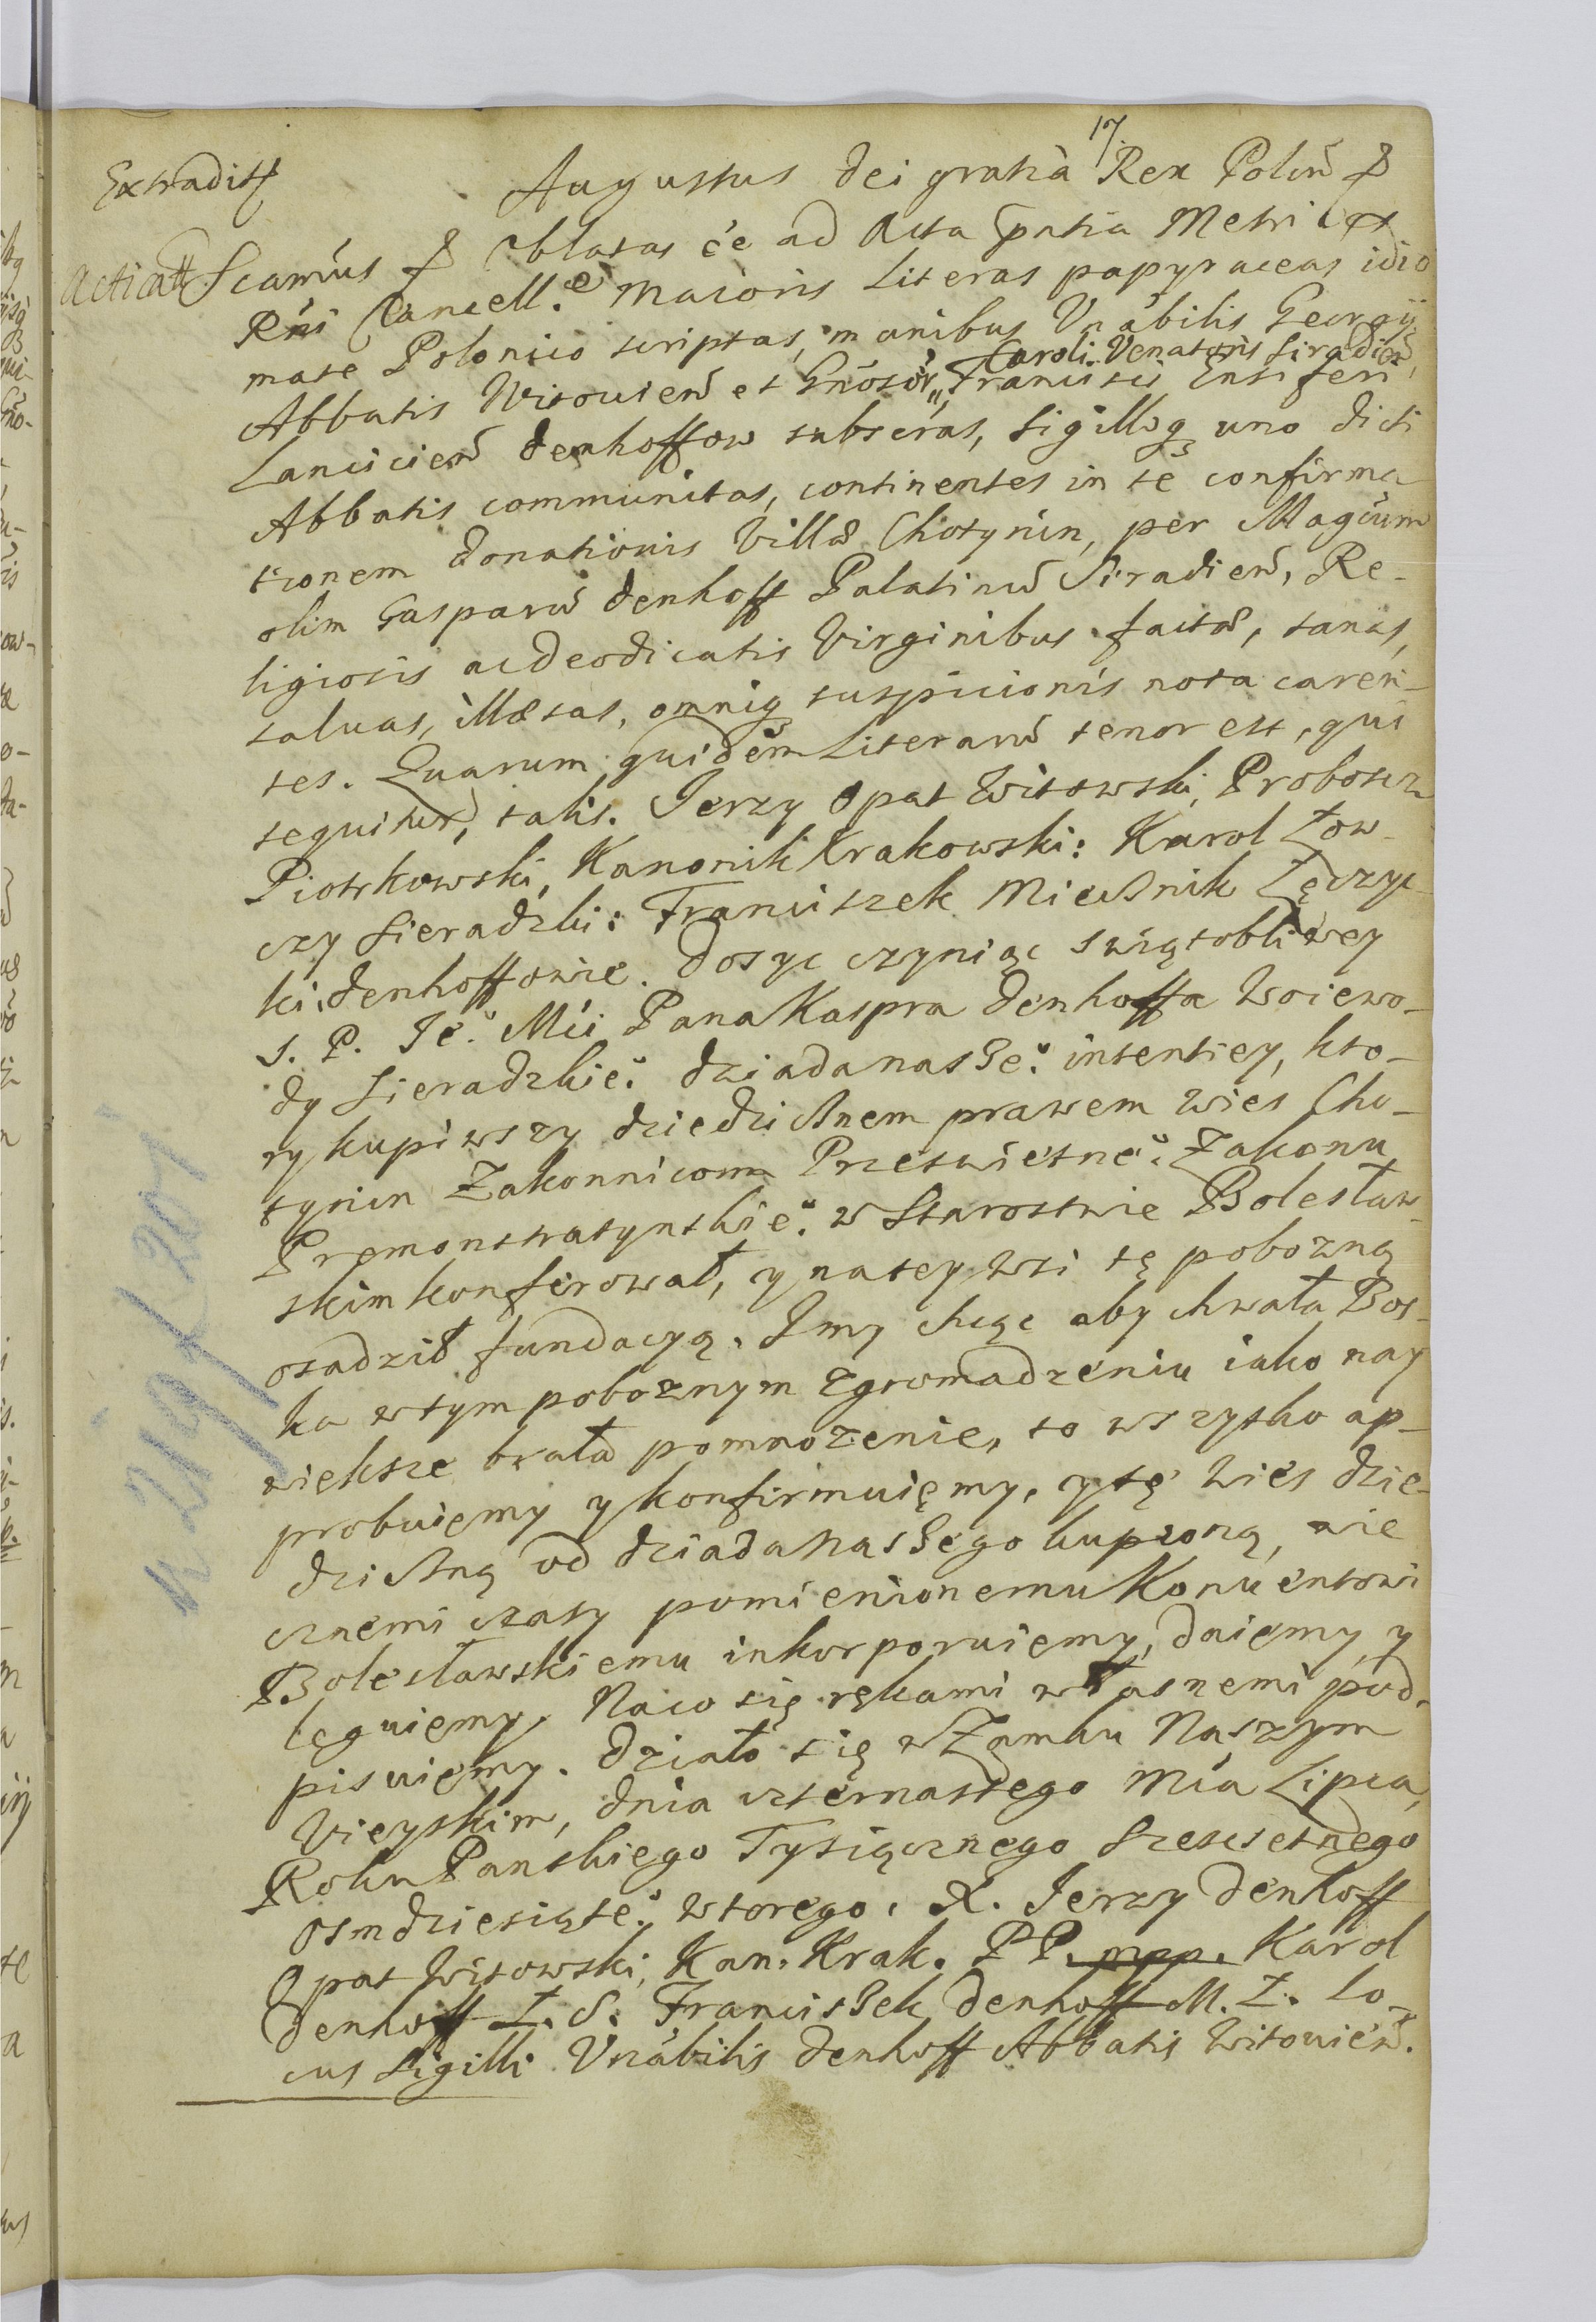 17.
Extradit
Augustus Dei gratia Rex Poloñ &
Acticat Scamus & Oblatas ée ad Acta pntia Metrices
Rñi Cancell:e Maioris Literas papyraceas idio
mate Polonico scriptas, manibus Vnabilis Georgii
Caroli Venatoris Siradień,
Abbatis Witouień et Gnosor, Francisci Ensiferi
Lancicień Denhoffow subscras, sigilloq uno dicti
Abbatis communitas, continentes in se confirma
tionem donationis Villæ Chotynin, per Magcum
olim Casparũ Denhoff Palatinũ Siradień, Re-
ligiosis ac Deodicatis Virginibus factæ, sanas,
saluas, illæsas, omniq suspicionis nota caren-
tes. Quarum quidem Literarũ tenor est, qui
sequitur, talis. Jerzy Opat Witowski, Proboscz
Piotrkowski, Kanonik Krakowski: Karol Łow-
czy Sieradzki: Franciszek Miecznik Łęczyc-
ki, Denhoffowie. Dosyc czyniąc swiątobliwey
s. P. Je: Mci Pana Kaspra Denhoffa Woiewo-
dy Sieradzkie: dziada nassze: intentiey, kto-
ry kupiwszy dziedzicznem prawem wies Cho-
tynin Zakonnicom Przeswietne: Zakonu
Premonstratynskie: w Starostwie Bolesław-
skim konferował, y na tey wsi tę pobozną
osadził fundacyą. I my chcąc aby chwała Bos-
ka w tym poboznym zgromadzeniu iako nay
wieksze brała pomnozenie, to wszytko ap-
probuiemy y konfirmuięmy, y tę wies dzie-
dziczną od dziada naszego kupioną, wie
cznemi czasy pomienionemu Konuentowi
Bolesławskiemu inkorporuięmy, daięmy, y
leguięmy. Na co się rękami własnemi pod-
pisuięmy. Działo się w Zamku Naszym
Vieyskim, dnia czternastego Mca Lipca,
Roku Panskiego Tysiącznego Szescsetnego
osmdziesiąte: wtorego. X. Jerzy Denhoff
Opat Witowski, Kan. Krak. PP. mpp. Karol
Denhoff Ł. S. Franciszek Denhoff M. Ł. Lo-
cus Sigilli Vnabilis Denhoff Abbatis Witouień.